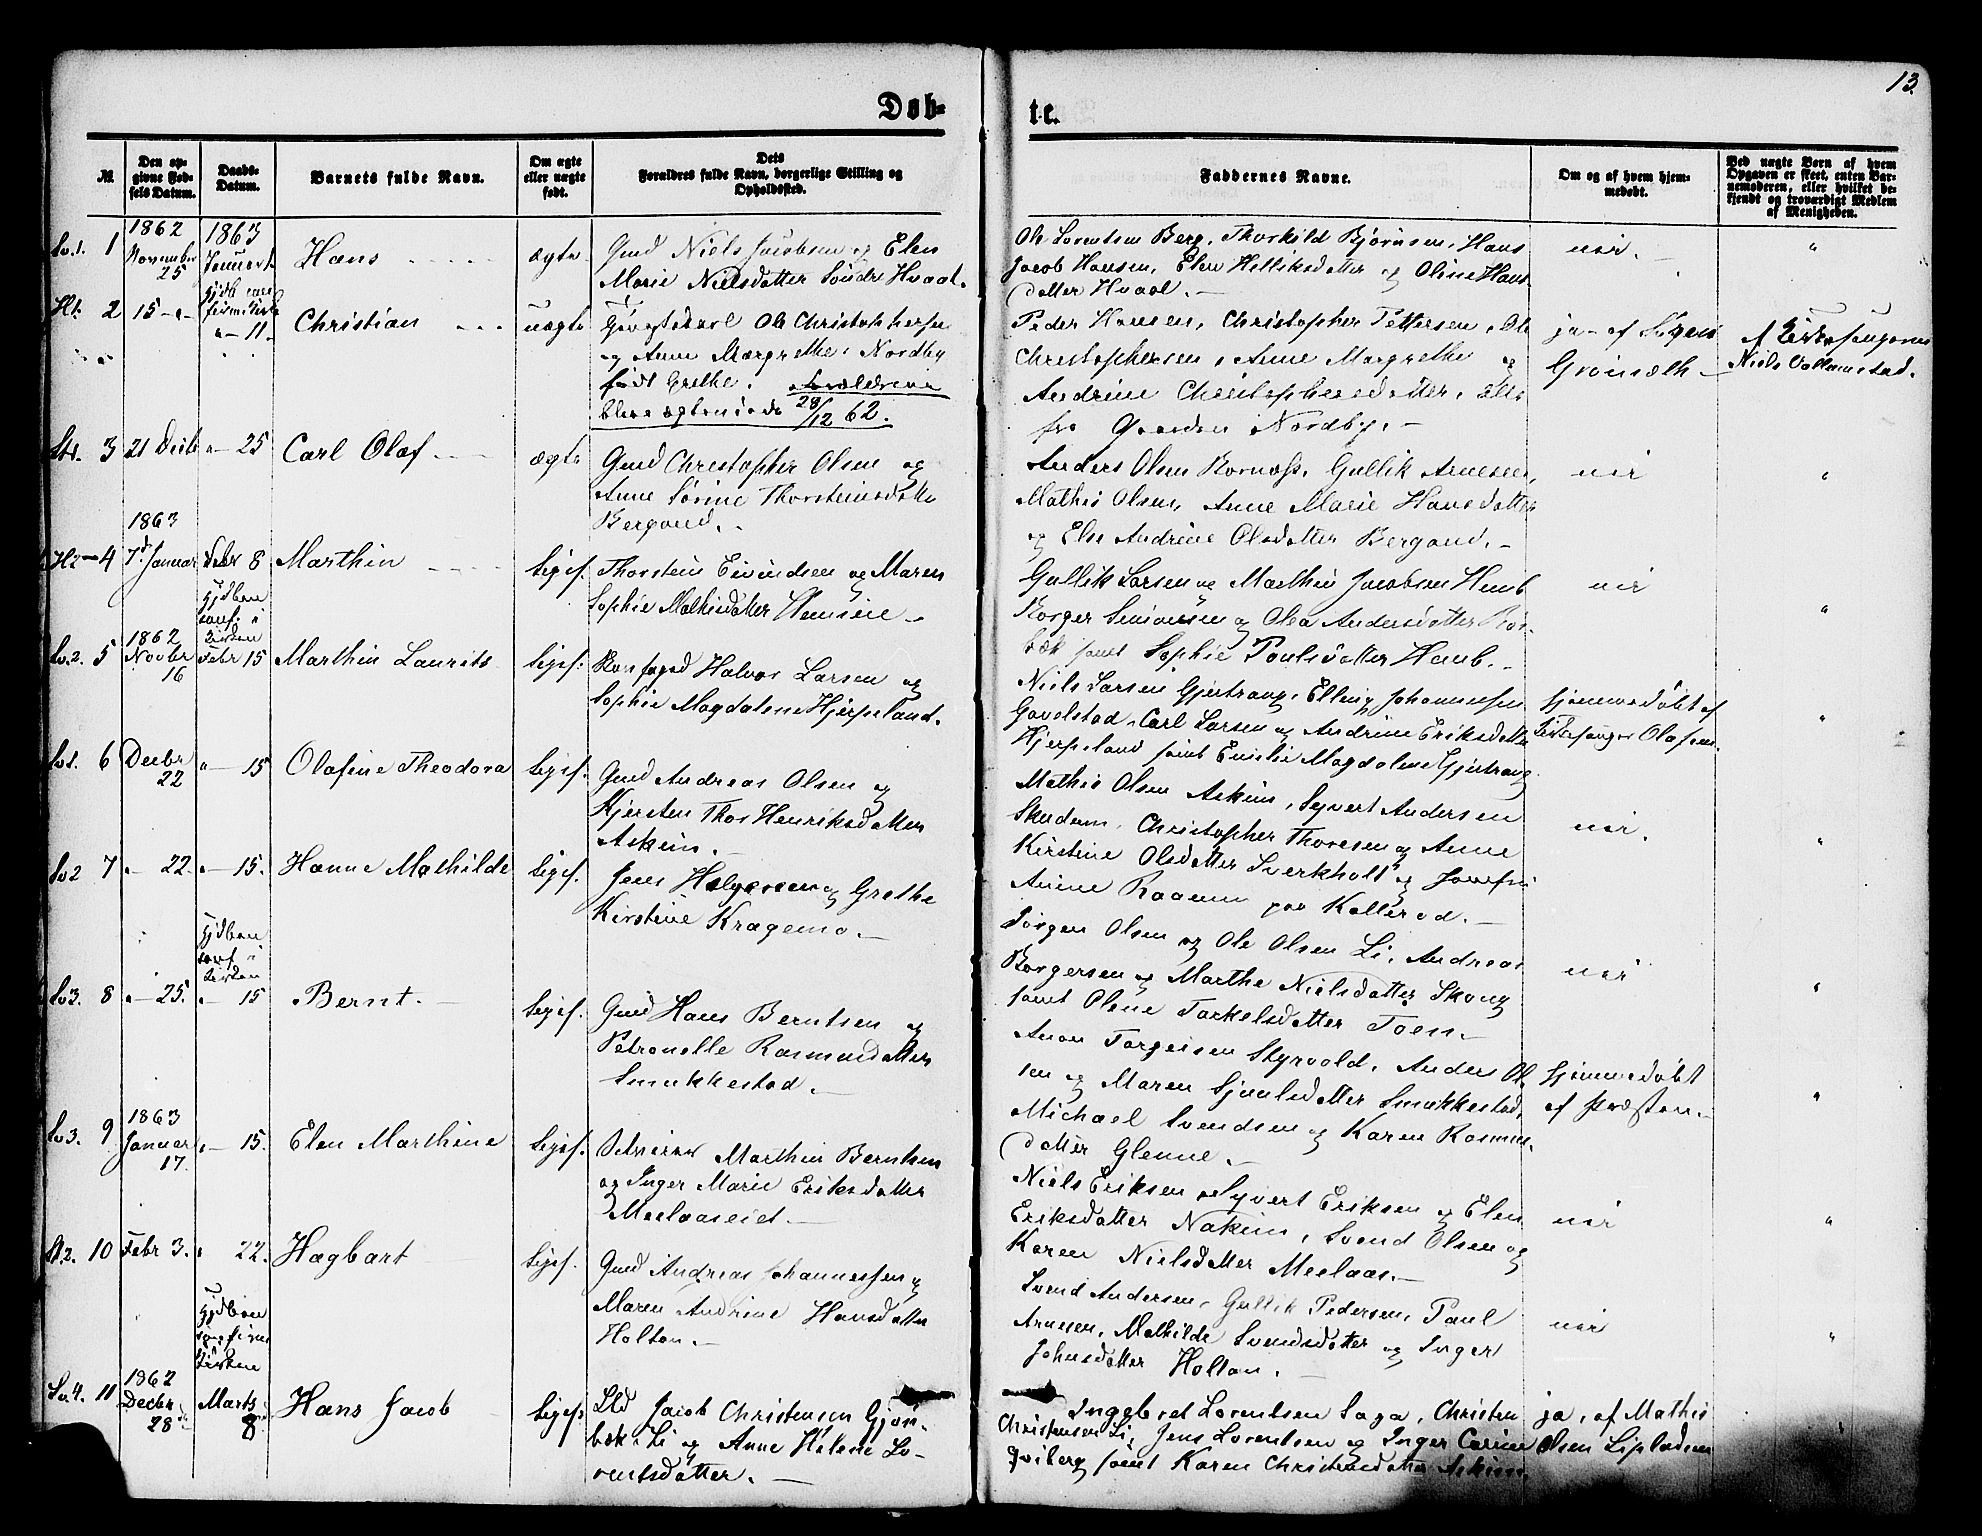 13.
Døb-
te.
№
Den op-
givne Fød-
sels Datum.
Daabs-
Datum.
Barnets fulde Navn.
Om ægte
eller uægte
født.
Dets
Forældres fulde Navn, borgerlige Stilling og
Opholdssted.
Faddernes Navne.
Om og af hvem hjem-
medøbt.
Ved uægte Børn af hvem
Opgaven er skeet, enten Bar-
nemoderen, eller hvilket be-
kjendt og troværdigt Medlem
af Menigheden.
1
1862
November
25
1863
Januar
Hans
ægte
Gmd Niels Jacobsen og Elen
Marie Nielsdatter Søndre Hvaal.
Ole Lorentsen Berg, Thorkild Bjørnsen, Hans
Jacob Hansen, Elen Helliksdatter og Oline Hans
datter Hvaal.
nei.
2
15
11.
Christian
uægte
Ole Christophersen
og Anne Margrethe Nordby
født Grethe. Forældrene
bleve ægteviede 28/12 62.
Peder Hansen, Christopher Pettersen, Ole
Christophersen, Anne Margrethe og
Andrine Christophersdatter, alle
fra Gaarden Nordby.
ja - af
af Kirkesangeren
Niels
3
21 Decbr
25
Carl Olaf
ægte
Gmd Christopher Olsen og
Anne Sørine Thorsteinsdatter
Bergand.
Anders Olsen Bornæss, Gullik Arnesen,
Mathis Olsen, Anne Marie Hansdatter
og Else Andrine Olsdatter Bergand.
nei
4
1863
7d Januar
Febr 8
Marthin
liges.
Thorstein Eivindsen og Maren
Sophie Mathisdatter
Gullik Larsen og Marthin Jacobsen Hemb
Borger Simonsen og Olea Andersdatter
bæk samt Sophie Paulsdatter Hemb.
nei
5
1862
Novbr
16
Febr 15
Marthin Laurits
ligef.
Halvor Larsen og
Sophie Magdalene Hjerpeland.
Niels Larsen Gjertrang, Elling Johannesen
Gavelstad, Carl Larsen og Andrine Eriksdatter
Hjerpeland samt Emilie Magdalene Gjertrang
hjemmedøbt af
Kirkesanger Olafsen.
6
Decbr
22
15
Olafine Theodora
ligef.
Gmd Andreas Olsen og
Kjersten Thor Henriksdatter
Askim.
Mathis Olsen Askim, Syvert Andersen
Christopher Thoresen og Anne
Kirstine Olsdatter Sverkholt og
Anine Raaum paa Kallerød.
nei.
7
22.
15.
Hanne Mathilde
ligef.
Jens Helgesen og Grethe
Kirstine Kragemo.
Jørgen Olsen og Ole Olsen Li, Andreas
Borgersen og Marthe Nielsdatter Skoug
samt Olene Torkelsdatter Toen.
nei
8
25.
15
Bernt.
ligef.
Gmd Hans Berntsen og
Petronelle Rasmusdatter
Smukkestad.
Aron Torgersen Styrvold, Anders Ol-
sen og Maren Sjaalsdatter Smukkestad,
Michael Svendsen og Karen Rasmus-
datter Glenne.
hjemmedøbt
af Præsten.
9
1863
Januar
17.
15.
Elen Marthine
ligef.
Marthin Berntsen
og Inger Marie Eriksdatter
Meelaaseiet.
Niels Eriksen, Syvert Eriksen og Elen
Eriksdatter Nakim, Svend Olsen og
Karen Nielsdatter Meelaas.
nei
10
Febr 3.
22.
Hagbart
ligef.
Gmd Andreas Johannessen og
Maren Andrine Hansdatter
Holtan.
Svend Andersen, Gullik Pedersen, Paul
Arnesen, Mathilde Svendsdatter og Inger
Johnsdatter Holtan.
nei
11
1862
Decbr
28
Marts
8
Hans Jacob
ligef.
Jacob Christensen Gjøri-
bæk i Li og Anne Helene Lo-
rentsdatter.
Ingebret Lorentsen Saga, Christen
Christensen Li, Jens Lorentsen og Inger Carine
Qviberg samt Karen Christensdatter Askim.
ja, af Mathis
Olsen